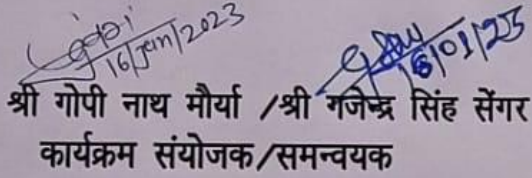 गोपी
16/Jan/2023
16/01/23
श्री गोपी नाथ मौर्या /श्री गजेन्द्र सिंह सेंगर
कार्यक्रम संयोजक/समन्वयक